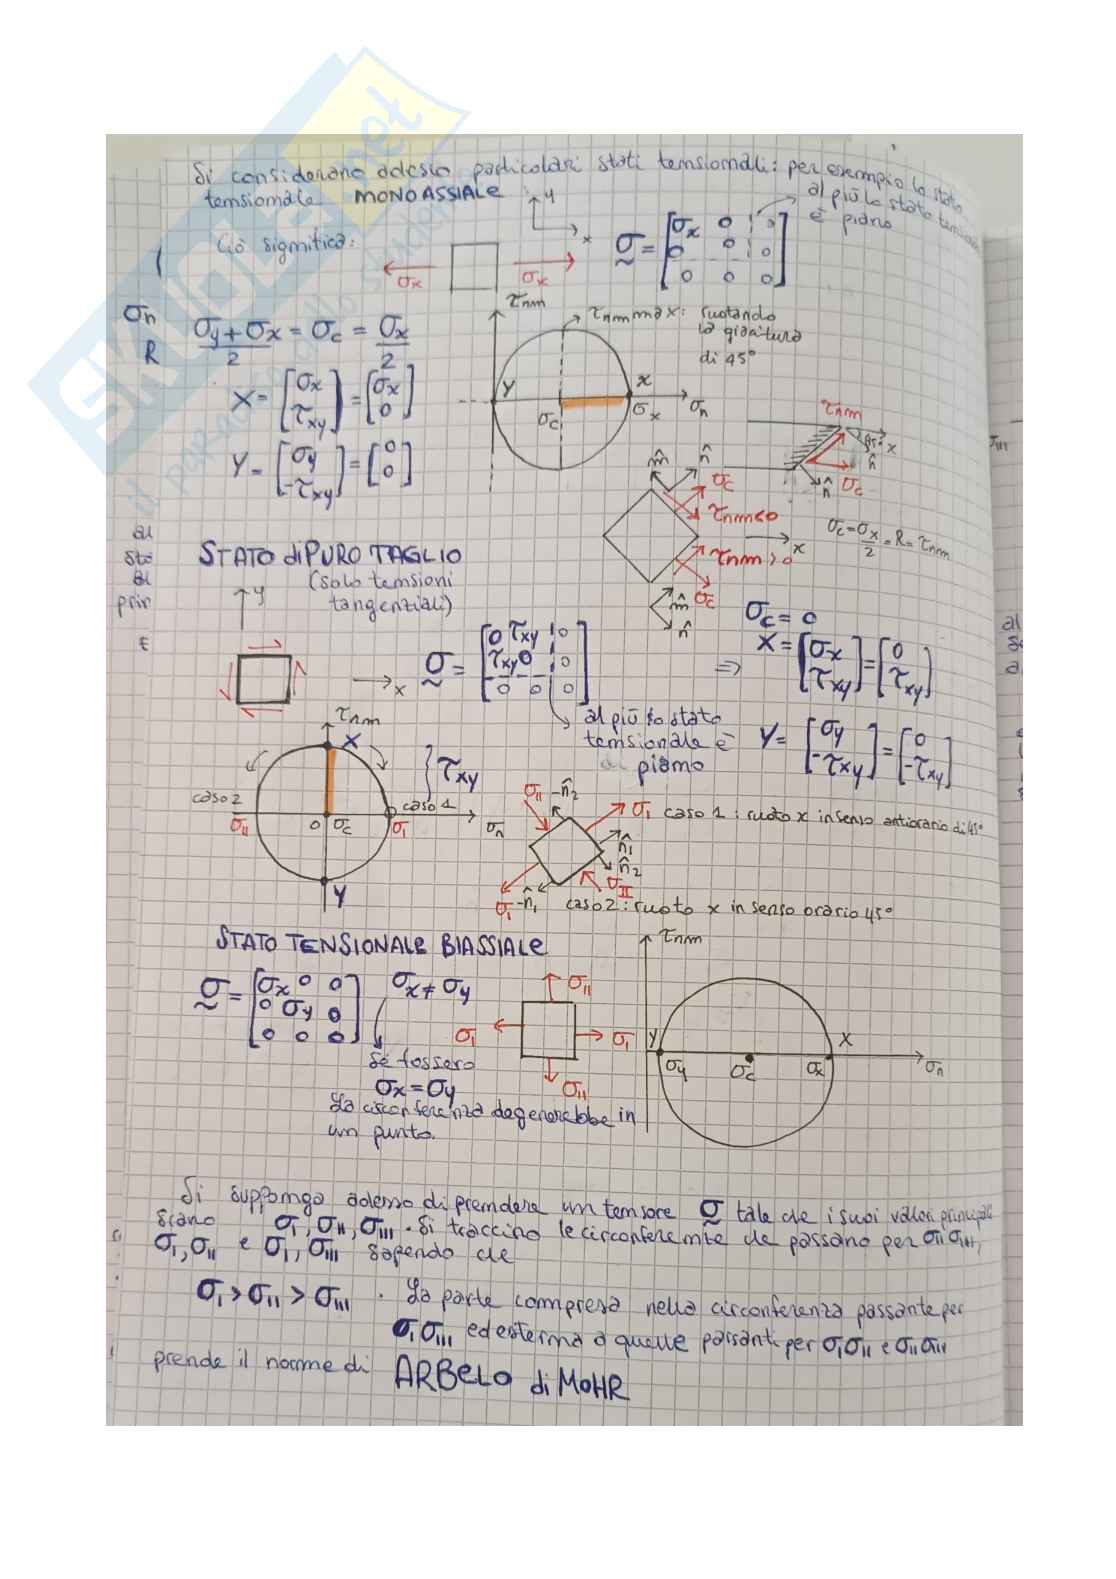 Si considerano adesso particolari stati tensionali: per esempio lo stato
tensionale MONOASSIALE
al più lo stato tensionale
è piano
Ciò significa:
y
x
σx
σx
σ = [σx 0 0
0 0 0
0 0 0]
σn
R
(σy + σx)/2 = σc = σx/2
X = [σx
τxy] = [σx
0]
Y = [σy
-τxy] = [0
0]
τnm
τnm max: ruotando
la giacitura
di 45°
Y
X
σc
σx
σn
τnm
45°
x
n̂
n̂
σc
m̂
n̂
σc
τnm<0
x
τnm>0
σc
m̂
n̂
σc = σx/2 = R = τnm
STATO di PURO TAGLIO
(solo tensioni
tangenziali)
y
x
σ = [0 τxy 0
τxy 0 0
0 0 0]
al più lo stato
tensionale è
piano
⇒
σc = 0
X = [σx
τxy] = [0
τxy]
Y = [σy
-τxy] = [0
-τxy]
τnm
X
τxy
caso 2
σII
0
σc
caso 1
σI
σn
Y
σII
-n̂2
σI
caso 1: ruoto x in senso antiorario di 45°
n̂1
n̂2
σII
σI
-n̂1
caso 2: ruoto x in senso orario 45°
STATO TENSIONALE BIASSIALE
σ = [σx 0 0
0 σy 0
0 0 0]
σx ≠ σy
se fossero
σx = σy
la circonferenza degenerebbe in
un punto.
σII
σI
σI
σII
τnm
Y
X
σy
σc
σx
σn
Si supponga adesso di prendere un tensore σ tale che i suoi valori principali
siano σI, σII, σIII. Si traccino le circonferenze che passano per σII σIII,
σI, σII e σI, σIII sapendo che
σI > σII > σIII. La parte compresa nella circonferenza passante per
σI σIII ed esterna a quelle passanti per σI σII e σII σIII
prende il nome di ARBELO di MOHR
SKUOLA.net